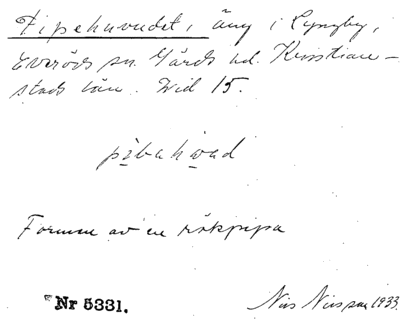 Pipehuvudet, äng i Lyngby,
Everöds sn. Gärds hd. Kristian-
stads län. Wid 15.
pibahwad
Formen av en rökpipa
Nr 5331. Nils Nilsson 1933.